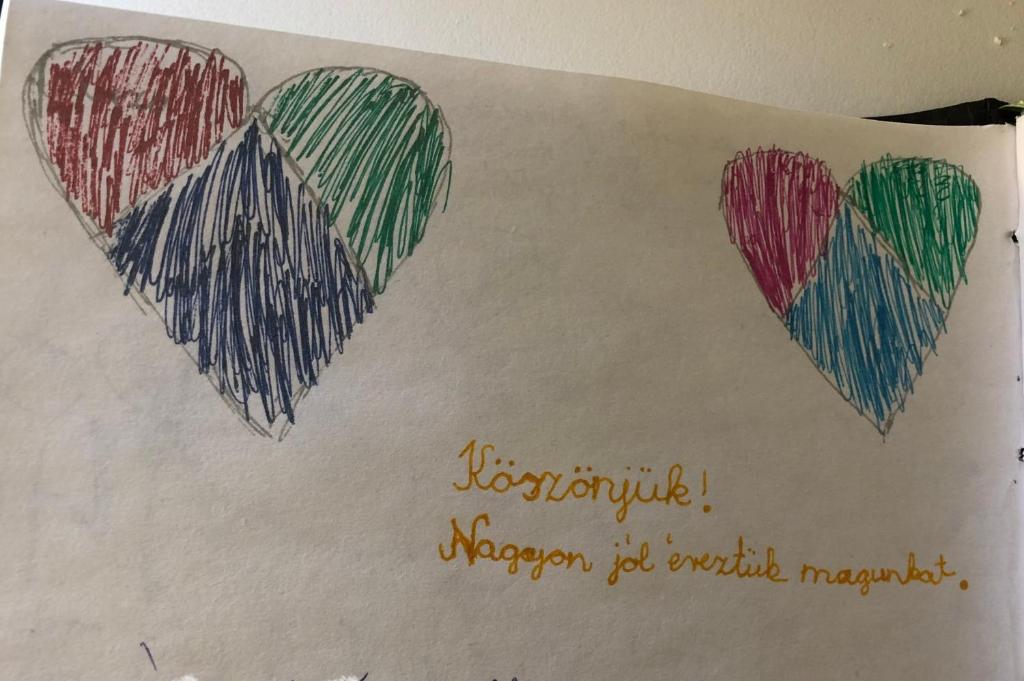 Köszönjük!
Nagyon jól éreztük magunkat.